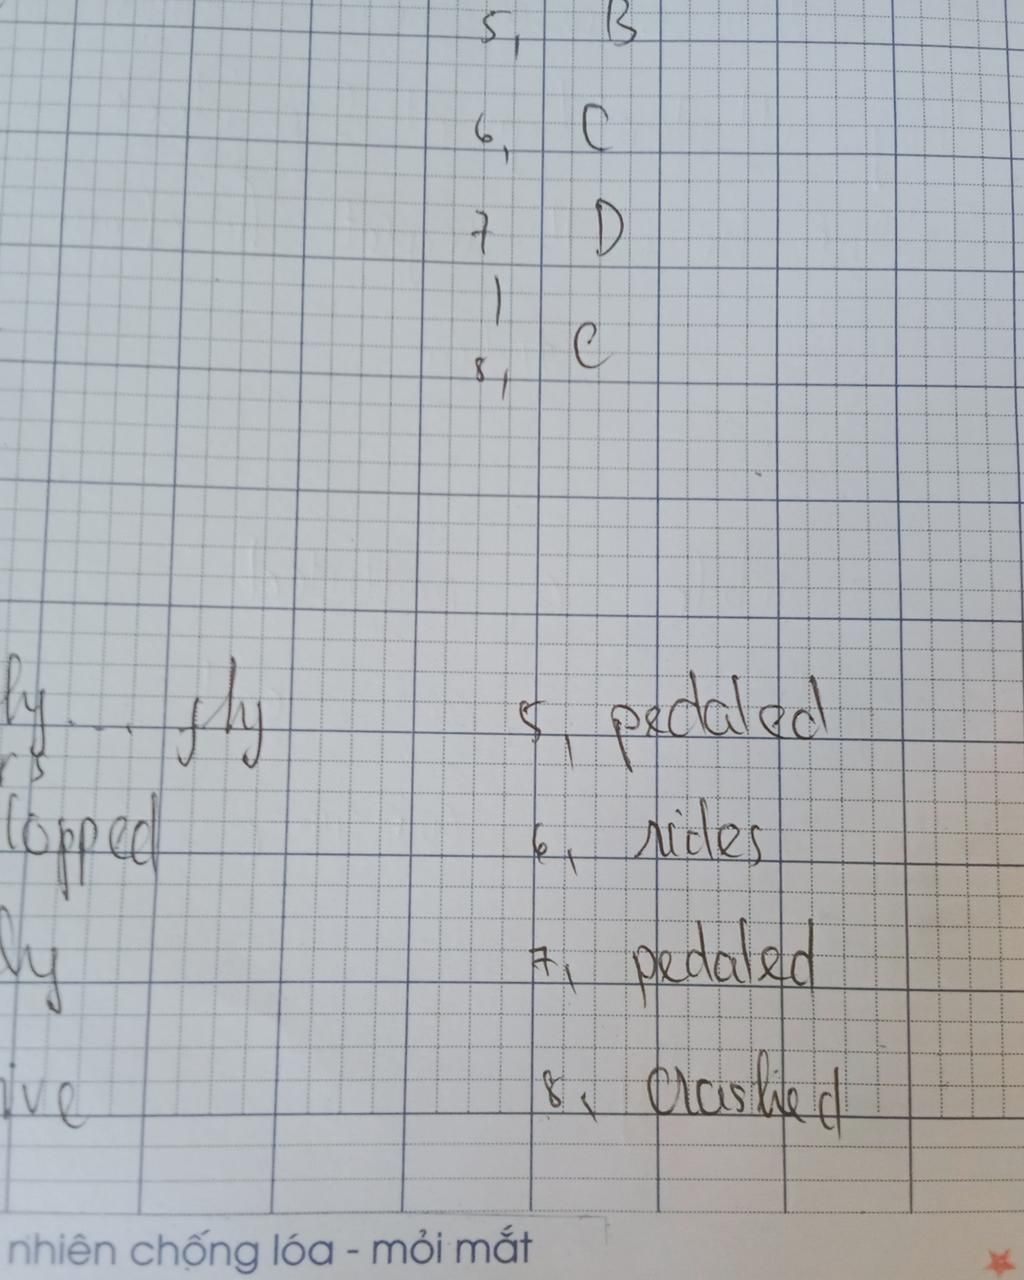 5, B
6, C
7, D
8, C
ly... fly 5, pedaled
rs
topped 6, rides
ly 7, pedaled
ive 8, crashed
nhiên chống lóa - mỏi mắt